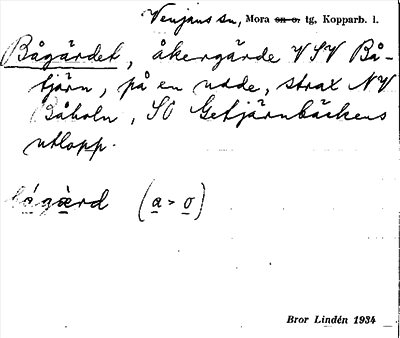 Venjans sn, Mora en o. tg, Kopparb. l.
Bågärdet, åkergärde VSV Bå-
tjärn, på en udde, strax NV
Båholn, SO Getjärnbäckens
utlopp.
bágæ̀rd (a > o)
Bror Lindén 1934